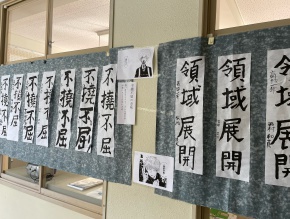 不撓不屈
不撓不屈
不撓不屈
不撓不屈
不撓不屈
不撓不屈
領域展開
領域展開
領域展開